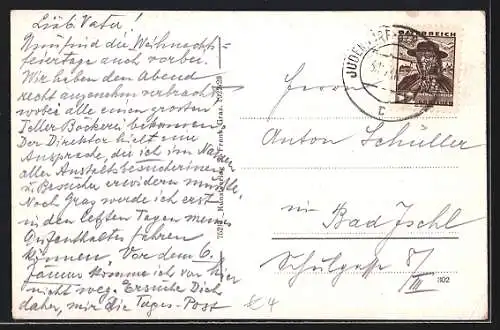 Lieb. Vater!
Nun sind die Weihnachts=
feiertage auch vorbei.
Wir haben den Abend
recht angenehm verbracht
wobei alle einen grossen
Teller Bäckerei bekamen.
Der Direktor hielt eine
Ansprache, die ich im Namen
aller Anstaltsbesucherinnen
u. Besucher erwidern mußte.
Nach Graz werde ich erst
in den letzten Tagen meines
Aufenthaltes fahren
können. Vor dem 6.
Jänner komme ich von hier
nicht weg. Ersuche Dich
daher, mir die Tages-Post
Kunstverlag Frank, Graz
JUDENDORF
ÖSTERREICH
Herrn
Anton Schüller
in Bad Ischl
Schulgasse 8/
III
302